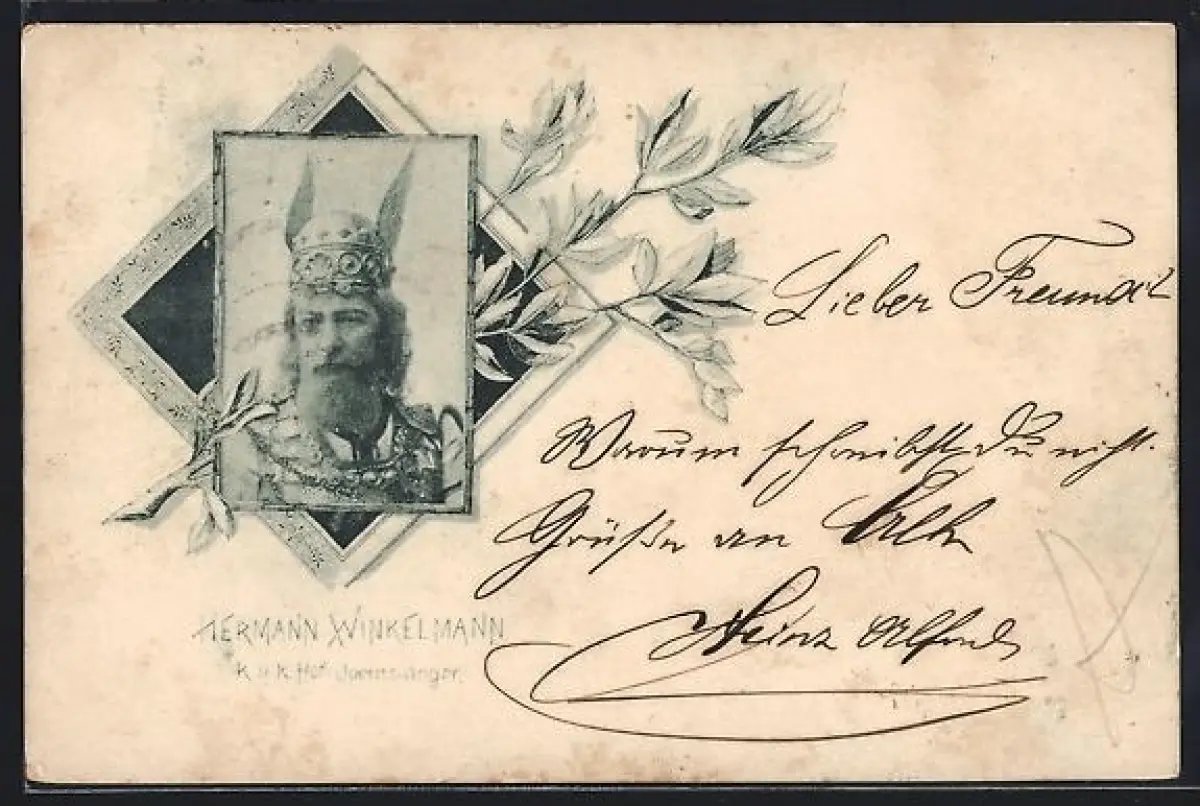 Lieber Freund!
Warum schreibst du nicht.
Grüße an Alle
Heinz Alfred
HERMANN WINKELMANN
K. u. K. Hof-Opernsänger.